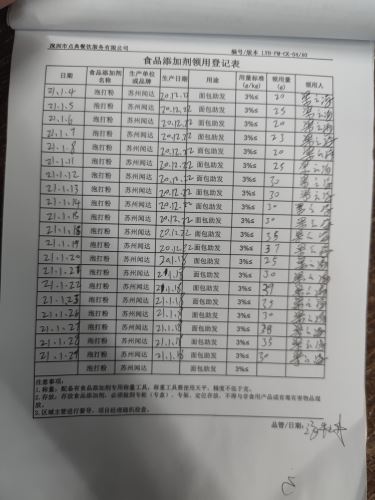 深圳市点典餐饮服务有限公司 编号/版本 LYH-PM-CX-04/A0
食品添加剂领用登记表
日期 食品添加剂名称 生产单位或品牌 生产日期 用途 用量标准(g/kg) 领用量(g) 领用人
21.1.4 泡打粉 苏州闻达 20.12.22 面包助发 3%≤ 20
21.1.5 泡打粉 苏州闻达 20.12.22 面包助发 3%≤ 25
21.1.6 泡打粉 苏州闻达 20.12.22 面包助发 3%≤ 20
21.1.7 泡打粉 苏州闻达 20.12.22 面包助发 3%≤ 23
21.1.8 泡打粉 苏州闻达 20.12.22 面包助发 3%≤ 20
21.1.11 泡打粉 苏州闻达 20.12.22 面包助发 3%≤ 25
21.1.12 泡打粉 苏州闻达 20.12.22 面包助发 3%≤ 30
21.1.13 泡打粉 苏州闻达 20.12.22 面包助发 3%≤ 30
21.1.14 泡打粉 苏州闻达 20.12.22 面包助发 3%≤ 30
21.1.15 泡打粉 苏州闻达 20.12.22 面包助发 3%≤ 30
21.1.18 泡打粉 苏州闻达 20.12.22 面包助发 3%≤ 35
21.1.19 泡打粉 苏州闻达 20.12.22 面包助发 3%≤ 37
21.1.20 泡打粉 苏州闻达 21.1.18 面包助发 3%≤ 25
21.1.21 泡打粉 苏州闻达 21.1.18 面包助发 3%≤ 30
21.1.22 泡打粉 苏州闻达 21.1.18 面包助发 3%≤
21.1.25 泡打粉 苏州闻达 21.1.18 面包助发 3%≤
21.1.26 泡打粉 苏州闻达 21.1.18 面包助发 3%≤ 30
21.1.27 泡打粉 苏州闻达 21.1.18 面包助发 3%≤
21.1.28 泡打粉 苏州闻达 21.1.18 面包助发 3%≤ 35
21.1.29 泡打粉 苏州闻达 21.1.18 面包助发 3%≤ 30
泡打粉 苏州闻达 面包助发 3%≤
注意事项：
1.称量：配备有食品添加剂专用称量工具，称量工具要使用天平，精度不低于克。
2.存放：存放食品添加剂，必须做到专柜（专盒）、专架，定位存放，不得与非食用产品或有毒有害物品混放。
3.区域主管进行督导，项目经理做到检查。
品管/日期：